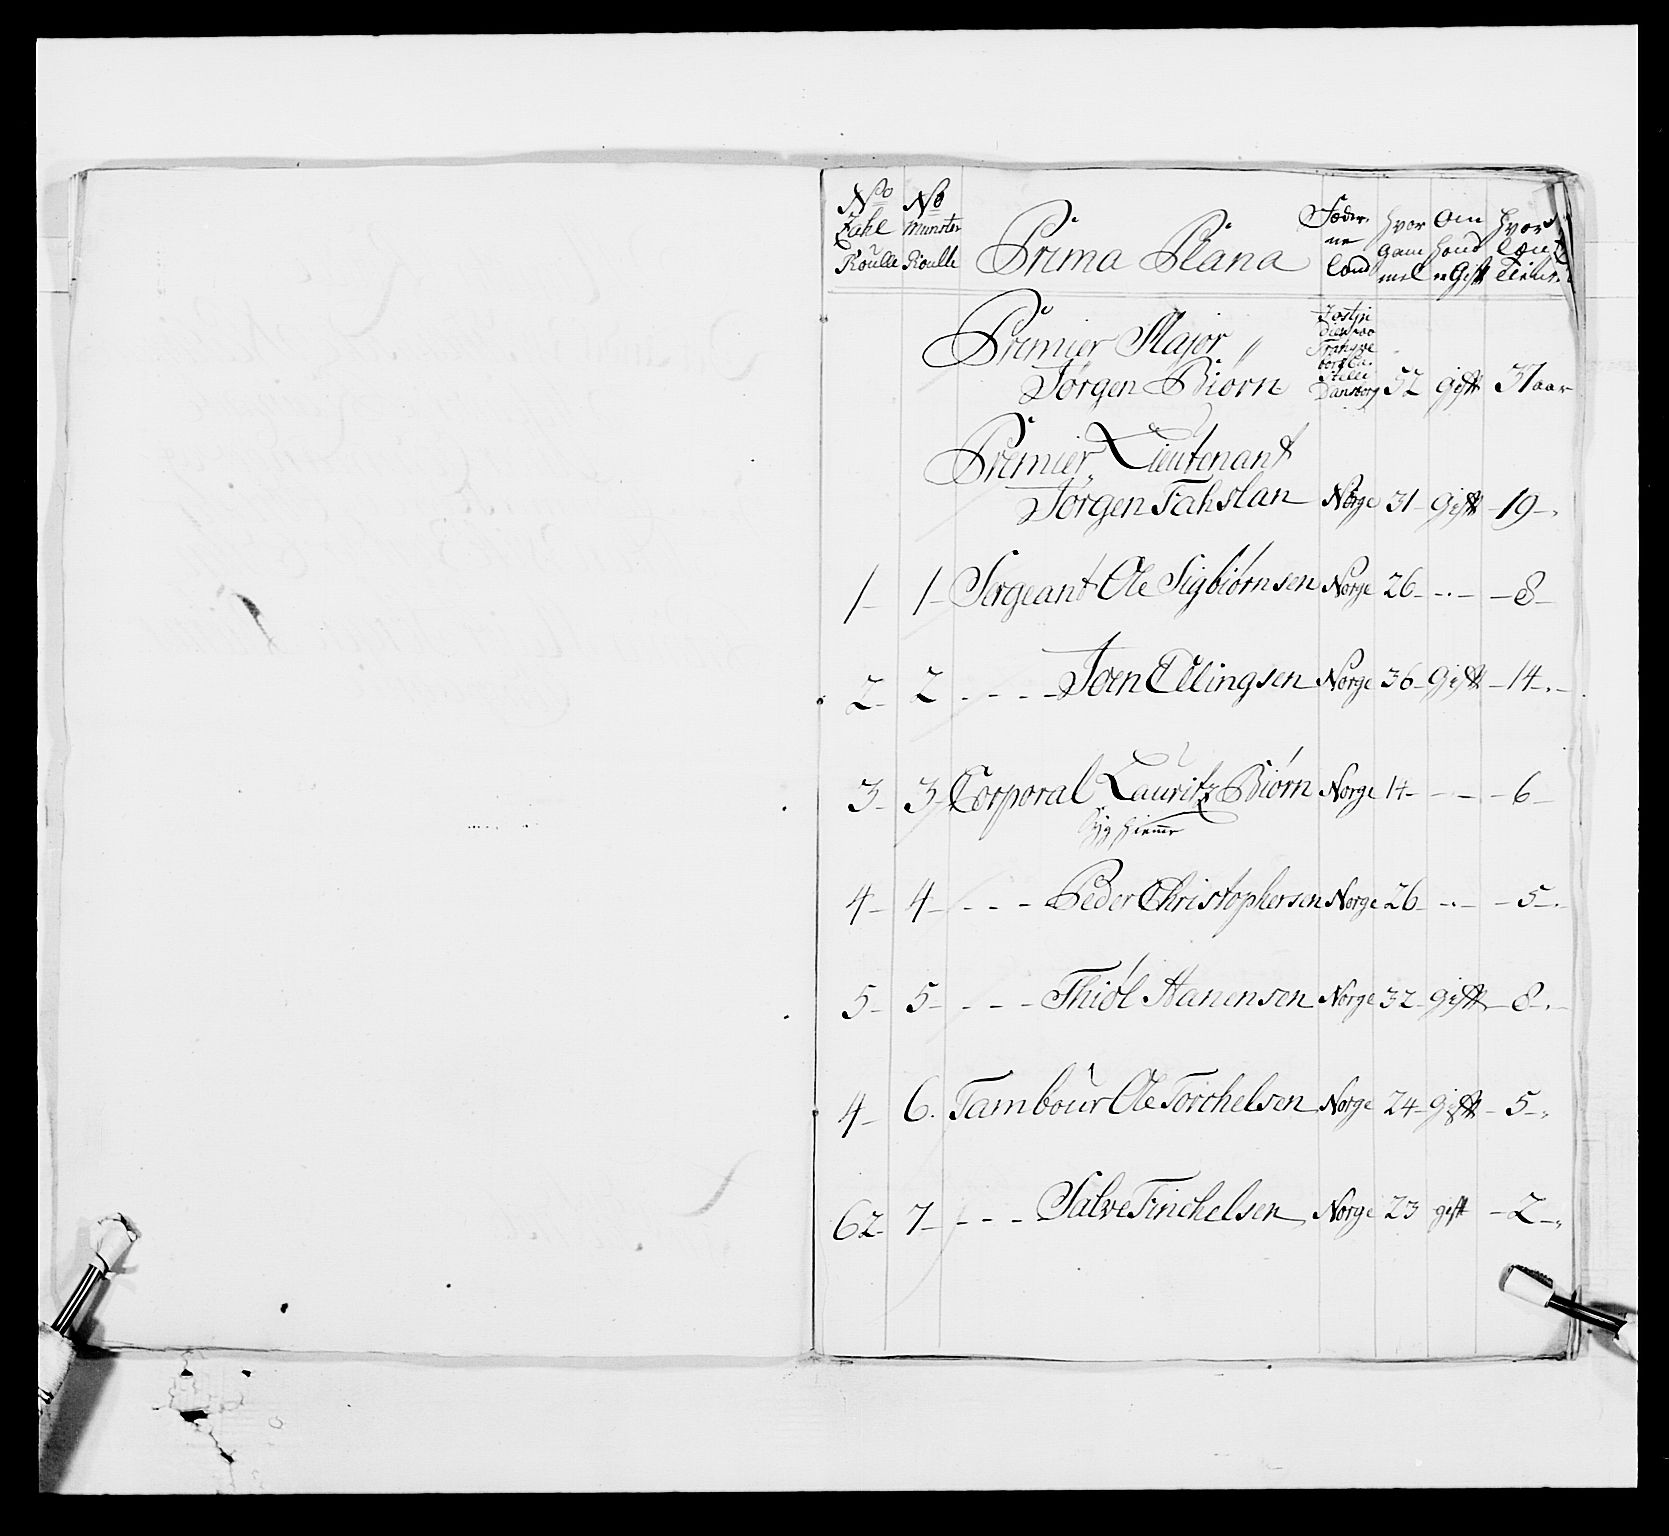 No Zahl Roulle No Munster Roulle Prima Plana Fæder ne land hvor gam mel Om hand er Gift hvor lænt Tient
Premier Major
Jørgen Biørn Dansborg 52 gift 37 aar
Premier Lieutenant
Jørgen Fahslan Norge 31 Gift 19
1 1 Sergeant Ole Sigbiørnsen Norge 26 - 8
2 2 - - - Joen Ellingsen Norge 36 Gift 14
3 3 Corporal Lauritz Biørn Norge 14 - 6
4 4 - - - Peder Christophersen Norge 26 - 5
5 5 - - - Thiøl Hanensen Norge 32 Gift 8
4 6 Tambour Ole Torchelsen Norge 24 Gift 5
62 7 - - - Salve Finchelsen Norge 23 gift 2